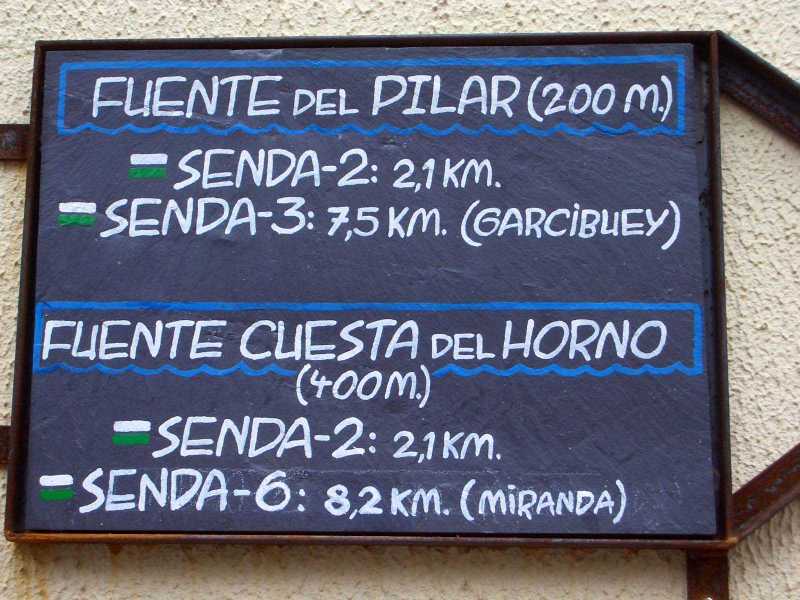 FUENTE DEL PILAR (200 M.)
SENDA-2: 2,1 KM.
SENDA-3: 7,5 KM. (GARCIBUEY)
FUENTE CUESTA DEL HORNO
(400 M.)
SENDA-2: 2,1 KM.
SENDA-6: 8,2 KM. (MIRANDA)